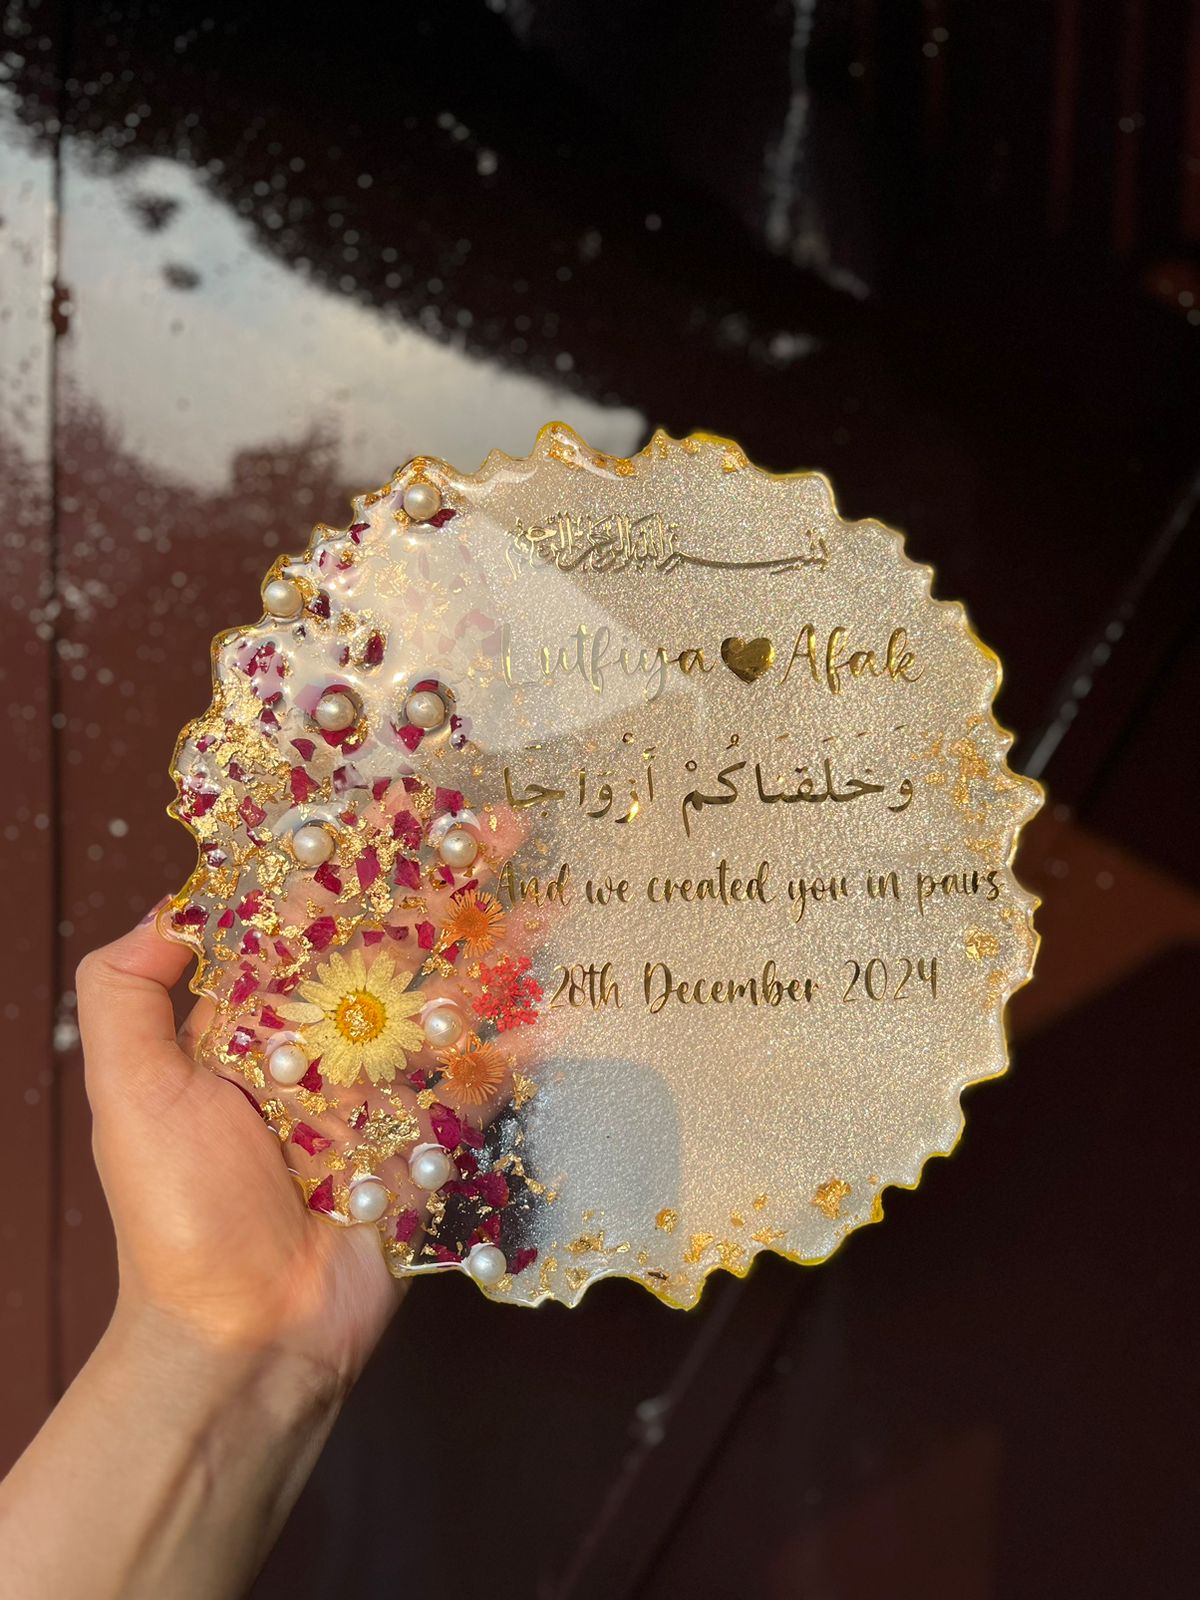 بسم الله الرحمن الرحيم
Lutfiya♥Afak
وَخَلَقنَاكُمْ أَزْوَاجًا
And we created you in pairs
28th December 2024